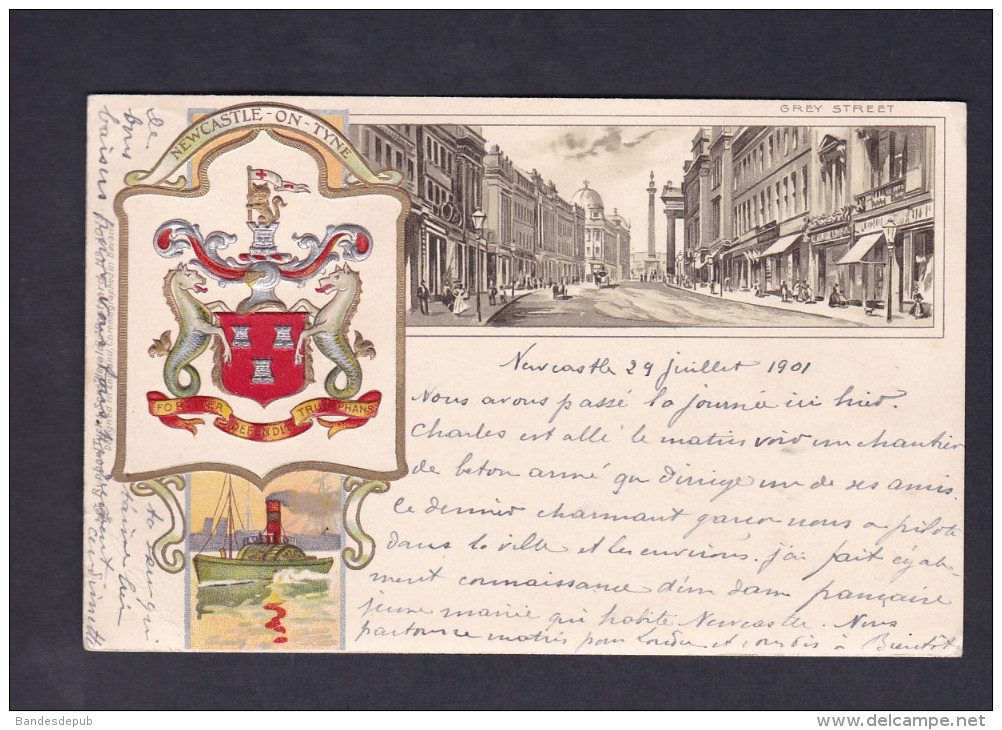 NEWCASTLE-ON-TYNE
GREY STREET
FORTITER
DEFENDIT
TRIUMPHANS
Newcastle 29 juillet 1901
Nous avons passé la journée ici hier.
Charles est allé le matin voir un chantier
de beton armé qu dirige un de ses amis.
Ce dernier charmant garçon nous a piloté
dans la ville et les environs. j'ai fait égale-
ment connaissance d'un dame française
jeune mariée qui habite Newcastle. Nous
partons ce matin pour et à Bientôt
de
bons
baisers
ta soeur qui
t'aime bien
Bandesdepub
www.delcampe.net